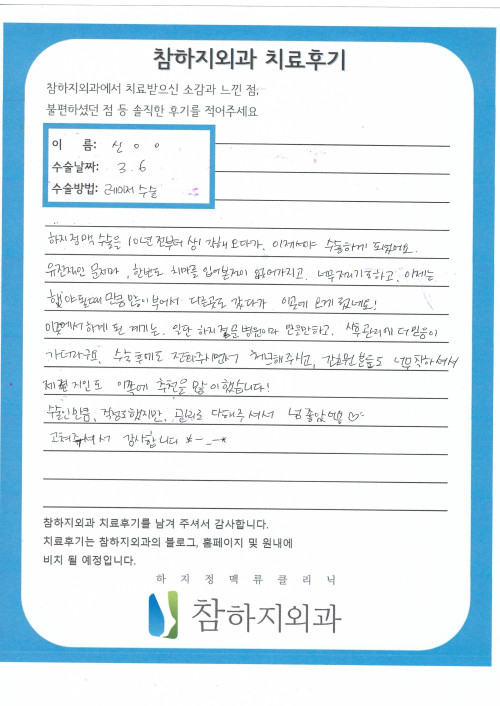 참하지외과 치료후기
참하지외과에서 치료받으신 소감과 느낀 점,
불편하셨던 점 등 솔직한 후기를 적어주세요
이 름: 신 o o
수술날짜: 3. 6
수술방법: 레이저 수술
하지정맥 수술을 10년 전부터 생각해 오다가, 이제서야 수술하게 되었어요.
유전적인 문제라, 한번도 치마를 입어본적이 없어가지고. 너무 하고, 이제는
해야 할때 만큼 많이 부어서 다른곳도 갔다가 이곳에 오게 됐네요!
이곳에서 하게 된 계기는. 일단 하지정맥 전문 병원이라 만족하고. 사후관리에 더 믿음이
가더라구요. 수술후에도 전화주시면서 걱정해주시고, 간호원분들도 너무 착하셔서
제 지인도 이쪽에 추천을 많이했습니다!
수술인만큼, 걱정도했지만, 관리도 다해주셔서 넘 좋았어용♡
고쳐주셔서 감사합니다 *-_-*
참하지외과 치료후기를 남겨 주셔서 감사합니다.
치료후기는 참하지외과의 블로그, 홈페이지 및 원내에
비치 될 예정입니다.
하 지 정 맥 류 클 리 닉
참하지외과